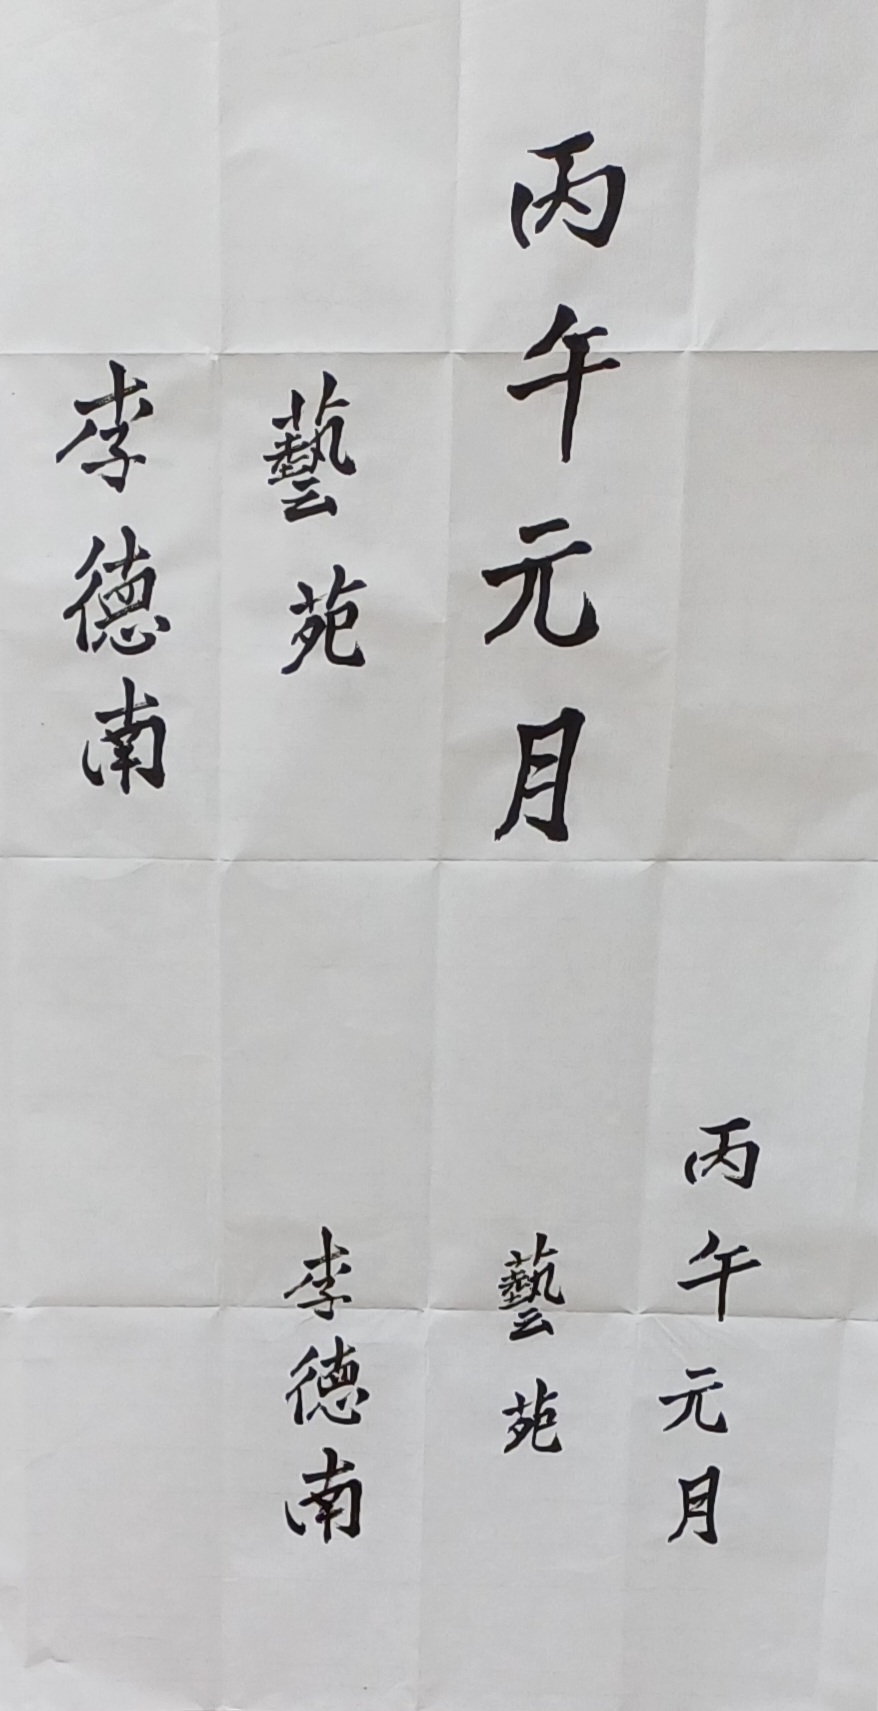 丙午元月
藝苑
李德南
丙午元月
藝苑
李德南